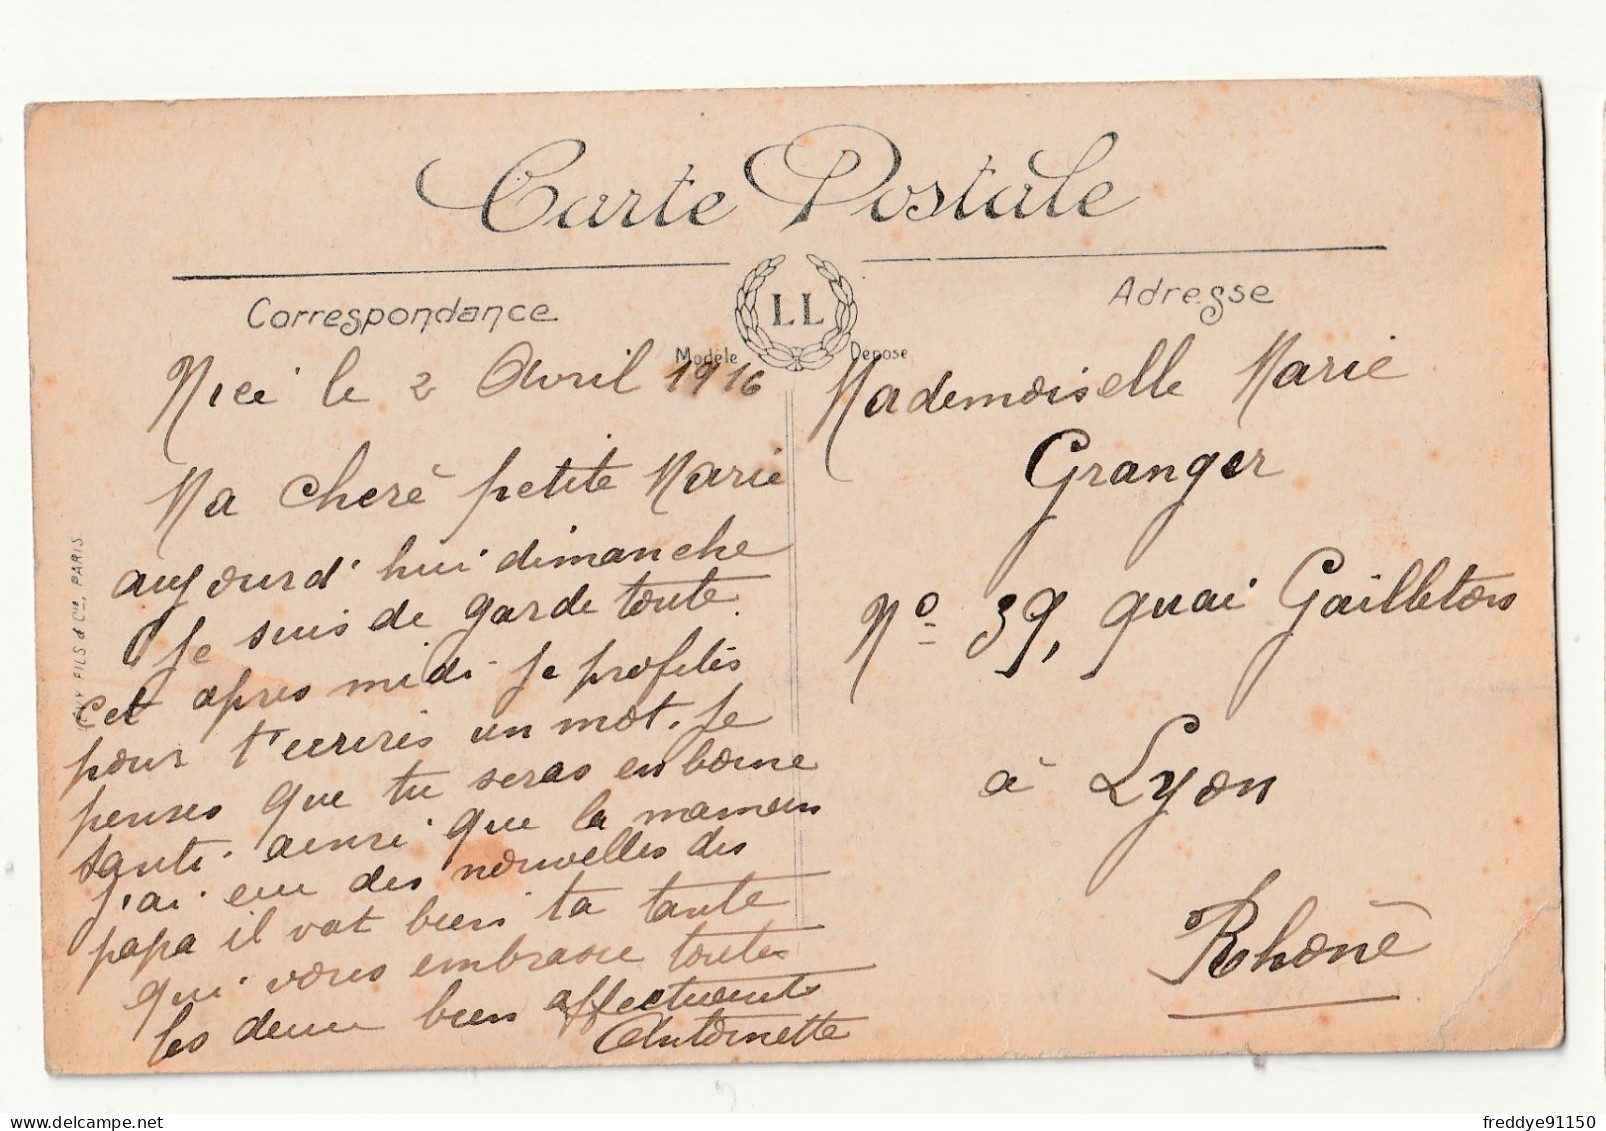 Carte Postale
Correspondance
LL
Modèle Déposé
Adresse
Nice le 2 Avril 1916
Ma Cheré petite Marie
aujourd'hui dimanche
je suis de garde toute
cet apres midi je profites
pour t'ecrires un mot. je
penses que tu seras en bonne
santé ainsi que la maman
j'ai eu des nouvelles des
papa il vat bien ta tante
qui vous embrasse toutes
les deux bien affectueuste
Antoinette
Mademoiselle Marie
Granger
No 39, quai Gailletons
à Lyon
Rhône
LEVY FILS & Cie, PARIS
freddye91150